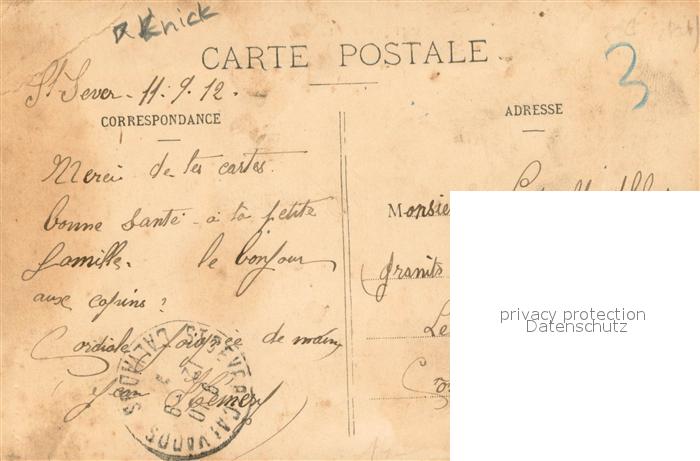 Knick
CARTE POSTALE
3
St Sever - 11. 9. 12.
CORRESPONDANCE
Merci de tes cartes.
bonne santé à ta petite
famille. le bonjour
aux copins ?
Cordiale poignée de main
Jean Hemery
ST SEVER-CALVADOS CALVADOS
ADRESSE
Monsie
granits
Le
privacy protection
Datenschutz